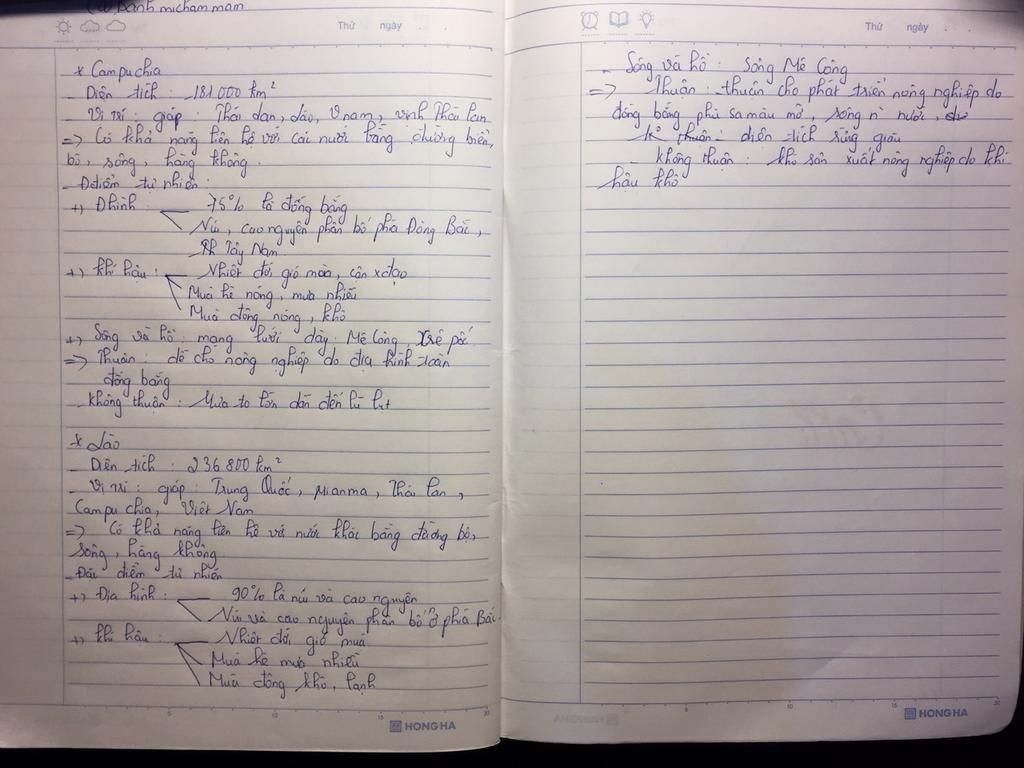 Thứ ngày
* Campuchia
- Diện tích : 181 000 km²
- Vị trí : giáp : Thái Lan, Lào, V nam, vịnh Thái Lan
=> Có khả năng liên hệ với các nước bằng đường biển,
bộ, sông, hàng không.
- Đ điểm tự nhiên :
+) Đ hình : 75% là đồng bằng
Núi, cao nguyên phân bố phía Đông Bắc,
Tây Nam
+) Khí hậu : Nhiệt đới gió mùa, cận xđạo
Mùa hè nóng, mưa nhiều
Mùa đông nóng, khô
+) Sông và hồ : mạng lưới dày : Mê Công,
=> Thuận : dễ cho nông nghiệp do địa hình toàn
đồng bằng
- Không thuận : Mưa to lớn dẫn đến lũ lụt
* Lào
- Diện tích : 236 800 km²
- Vị trí : giáp : Trung Quốc, Mianma, Thái Lan,
Campuchia, Việt Nam
=> Có khả năng liên hệ với nước khác bằng đường bộ,
sông, hàng không
- Đặc điểm tự nhiên
+) Địa hình : 90% là núi và cao nguyên
Núi và cao nguyên phân bố ở phía Bắc
+) Khí hậu : Nhiệt đới gió mùa
Mùa hè mưa nhiều
Mùa đông khô, lạnh
5 15 20
HONG HA
Thứ ngày
- Sông và hồ : Sông Mê Công
=> Thuận : thuận cho phát triển nông nghiệp do
đồng bằng phù sa màu mỡ, sông n` nước,
diện tích rừng giàu
- không thuận : khó sản xuất nông nghiệp do khí
hậu khô
5 10 15 20
HONG HA